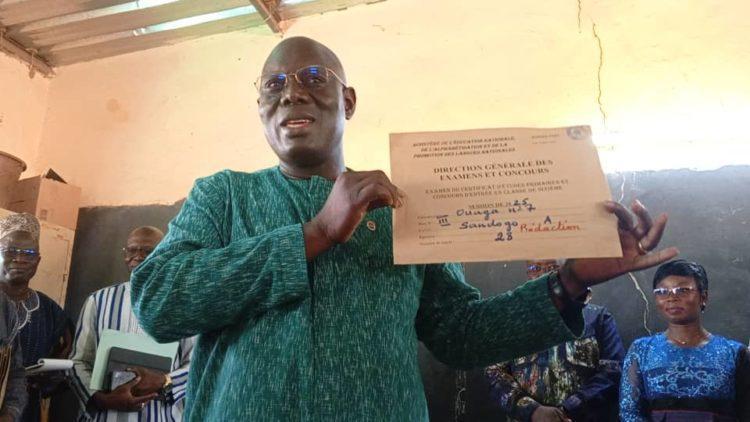 MINISTÈRE DE L'ÉDUCATION NATIONALE,
DE L'ALPHABÉTISATION ET DE LA
PROMOTION DES LANGUES NATIONALES
DIRECTION GÉNÉRALE DES
EXAMENS ET CONCOURS
EXAMEN DU CERTIFICAT D'ÉTUDES PRIMAIRES ET
CONCOURS D'ENTRÉE EN CLASSE DE SIXIÈME
SESSION DE 2025
Ouaga n°7
III Sandogo A
28 Rédaction